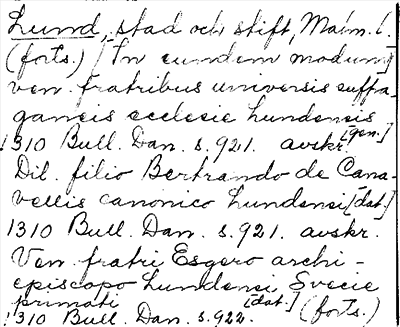 Lund, stad och stift, Malm. l.
(forts.) / In eundem modum]
ven. fratribus universis suffra-
ganeis ecclesie Lundensis
[gen.]
1310 Bull. Dan. s. 921. avskr.
Dil. filio Bertrando de Cana-
vellis canonico Lundensi [dat.]
1310 Bull. Dan. s. 921. avskr.
Ven fratri Esgero archi-
episcopo Lundensi Svecie
primati [dat.] (forts.)
1310 Bull. Dan. s. 922.